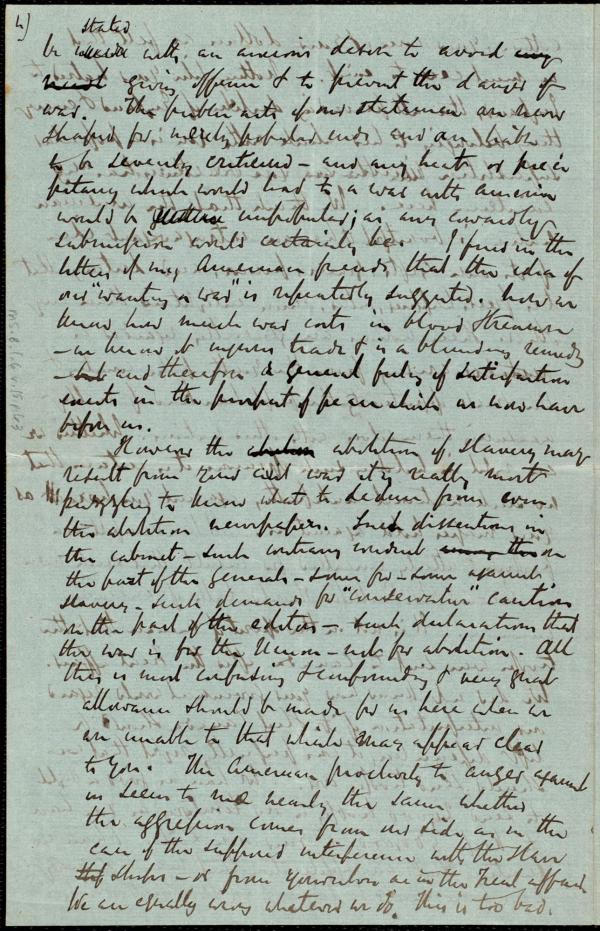 4)
stated
be with an anxious desire to avoid any
most giving offence & to prevent the danger of
war. The public acts of our statesmen are now
shaped for merely popular ends and are liable
to be severely criticised – and any heat or preci
pitancy which would lead to a war with America
would be unpopular; as any cowardly
submission would certainly be. I find in the
letters of my American friends that the idea of
our "wanting a war" is repeatedly suggested. Now we
know how much war costs in blood & treasure
– we know it injures trade & is a blundering remedy
– but and therefore a general feeling of satisfaction
exists in the prospect of peace which we now have
before us.
However the abolition of slavery may
result from your civil war it is really most
perplexing to know what to deduce from even
the abolition newspapers. Such dissentions in
the cabinet – such contrary conduct among the on
the part of the Generals – some for – some against
slavery – such demands for "conservative" caution
on the part of the editors – such declarations that
the war is for the Union – not for abolition. All
this is most confusing & confounding & very great
allowance should be made for us here when we
are unable to that which may appear clear
to you. The American proclivity to anger against
us seems to me nearly the same whether
the aggression comes from our side as in the
case of the supposed interference with the Slave
ships – or from yourselves as in the Trent affair
We are equally wrong whatever we do. This is too bad.